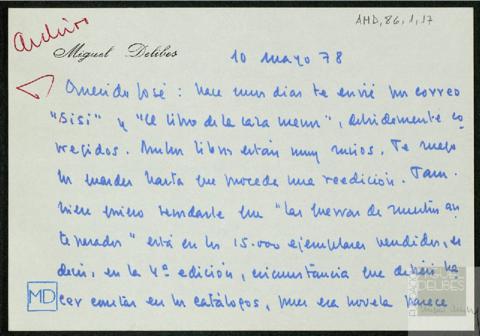 AMD, 86, 1, 17
Archivo
Miguel Delibes
10 mayo 78
Querido José: hace unos días te envié por correo
"Sisi" y "El libro de la caza menor", debidamente co
rregidos. Ambos libros están muy míos. Te ruego
los guardes hasta que proceda una reedición. Tam
bién quiero recordarte que "Las guerras de nuestros an
tepasados" está en los 15.000 ejemplares vendidos, es
decir, en la 4ª edición, circunstancia que debéis ha
cer constar en los catálogos, pues esa novela parece
MD
MIGUEL
DELIBES